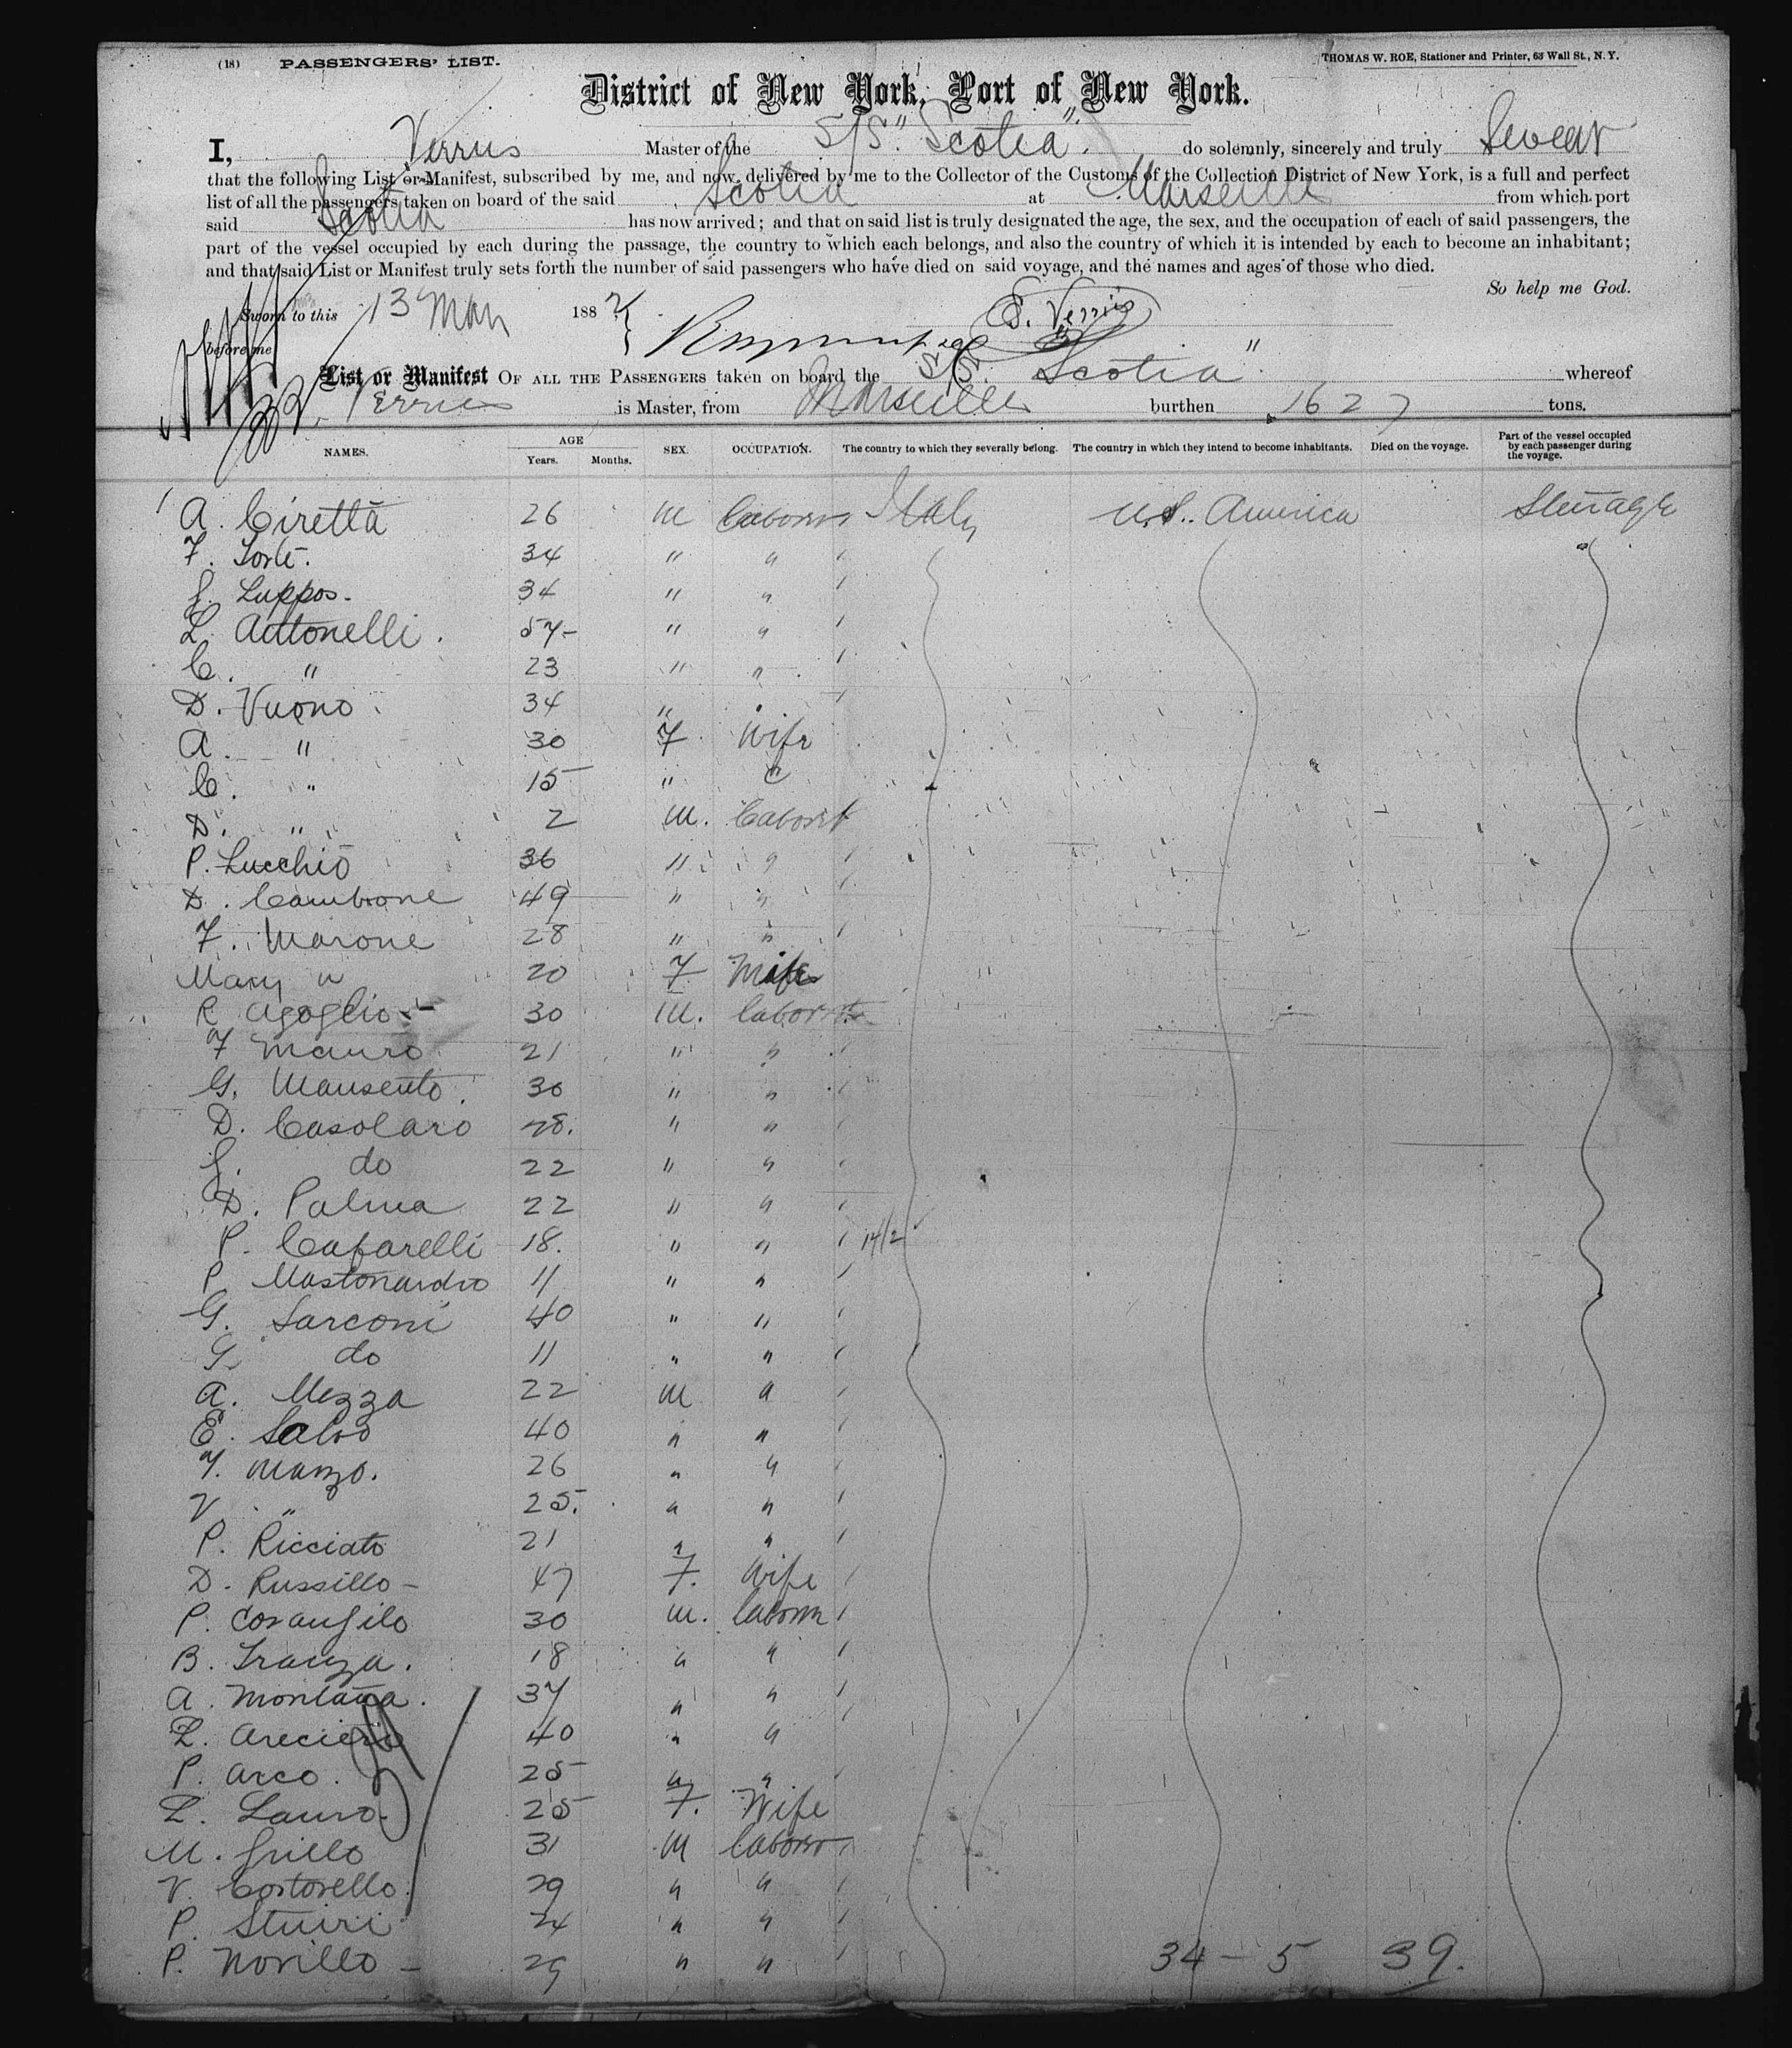 (18) PASSENGERS' LIST. THOMAS W. ROE, Stationer and Printer, 63 Wall St., N.Y.
District of New York, Port of New York.
I, Verries Master of the S/S "Scotia" do solemnly, sincerely and truly Swear
that the following List or Manifest, subscribed by me, and now delivered by me to the Collector of the Customs of the Collection District of New York, is a full and perfect
list of all the passengers taken on board of the said Scotia at Marseille from which port
said Scotia has now arrived; and that on said list is truly designated the age, the sex, and the occupation of each of said passengers, the
part of the vessel occupied by each during the passage, the country to which each belongs, and also the country of which it is intended by each to become an inhabitant;
and that said List or Manifest truly sets forth the number of said passengers who have died on said voyage, and the names and ages of those who died.
So help me God.
Sworn to this 13 Mar 188
before me
List or Manifest OF ALL THE PASSENGERS taken on board the S/S. Scotia" whereof
Verries is Master, from Marseilles burthen 1627 tons.
NAMES. AGE Years. Months. SEX. OCCUPATION. The country to which they severally belong. The country in which they intend to become inhabitants. Died on the voyage. Part of the vessel occupied by each passenger during the voyage.
1 A. Ciretta 26 M Laborer Italy U.S. America Steerage
F. Forte. 34 " "
J. Luppos 34 " "
L. Antonelli. 57 " "
C. " 23 " "
D. Vuono 34 "
A. " 30 F Wife
C. " 15 " "
D. " 2 M. Laborer
P. Lucchio 36 " "
D. Cambrone 49 " "
F. Marone 28 " "
Mary " 20 F Wife
R Agoglio 30 M. Laborer
F Mauro 21 " "
G. Mansento. 30 " "
D. Casolaro 28. " "
J. do 22 " "
D. Palma 22 " "
P. Cafarelli 18. " " 14/2
P. Mastonardro 11 " "
G. Sarconi 40 " "
G do 11 " "
A. Mezza 22 M "
E. Salvo 40 " "
F. Manzo. 26 " "
V " 25. " "
P. Ricciato 21 " "
D. Russillo 47 F. Wife
P. Corangilo 30 M. Laborer
B. Franza. 18 " "
A. Montana. 37 " "
L. Arecieri 40 " "
P. Arco. 25 " "
L. Lauro. 25 F. Wife
M. Grillo 31 M Laborer
V. Cortorello. 29 " "
P. Stuiri 24 " "
P. Novillo 29 " " 34 - 5 39.